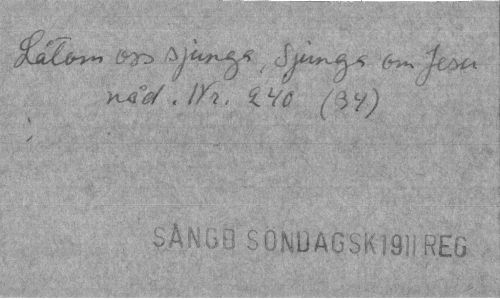 Låtom oss sjunga, Sjunga om Jesu
nåd. Nr. 240 (34)
SÅNGB SÖNDAGSK 1911 REG